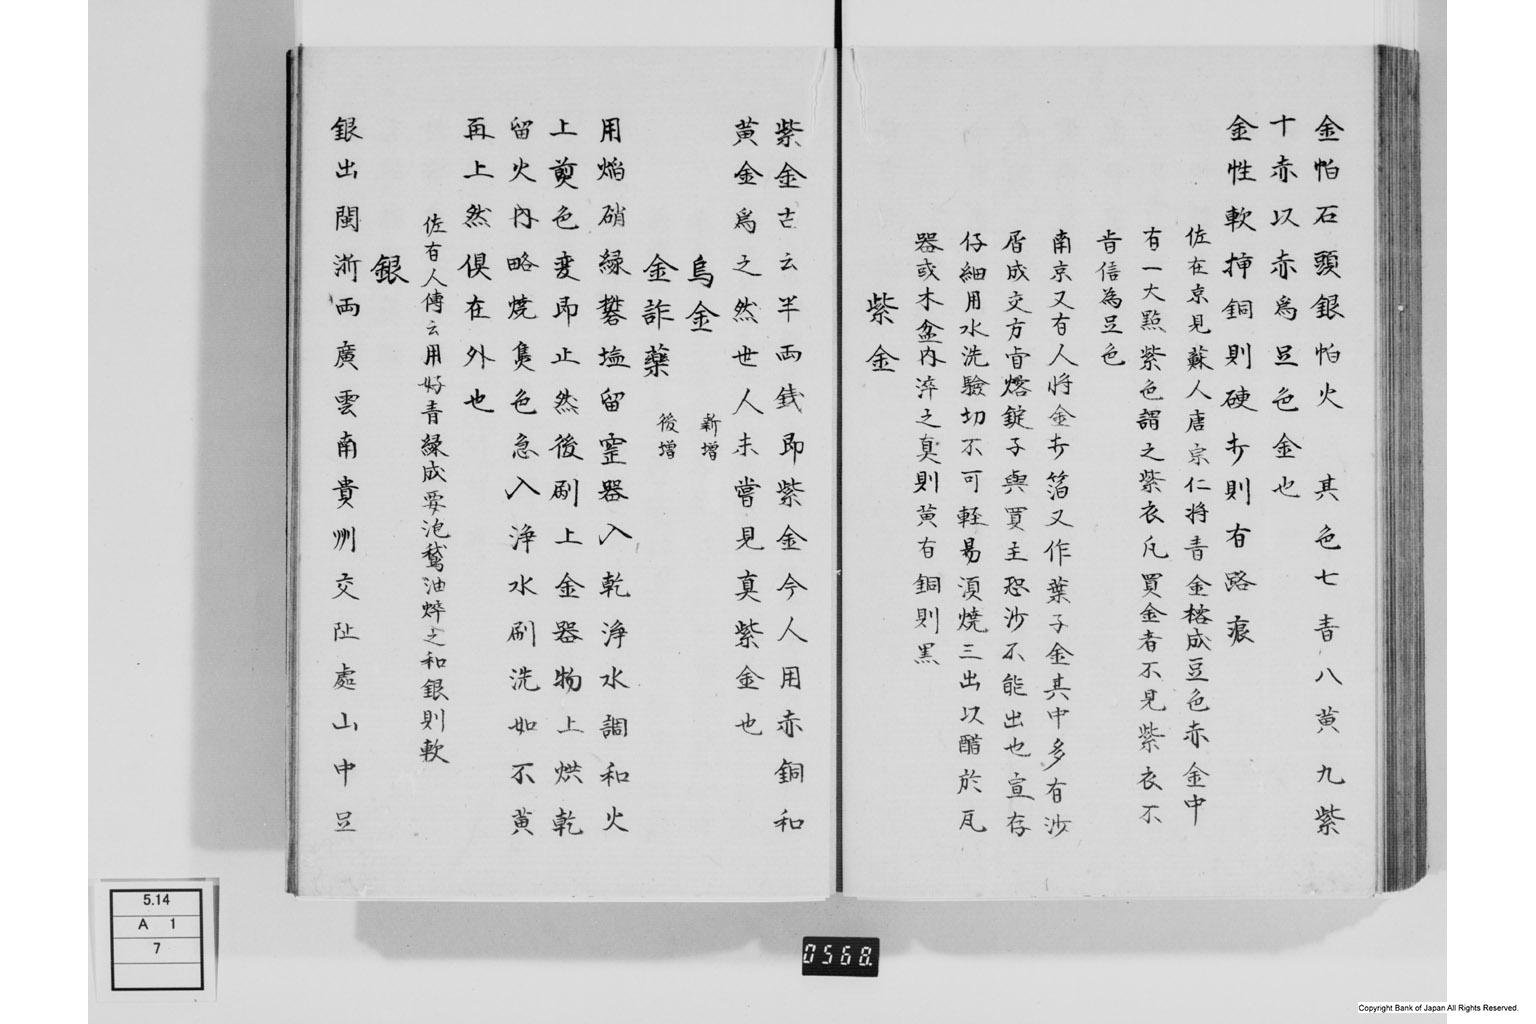 金怕石頭銀怕火　其色七青八黄九紫
十赤以赤爲足色金也
金性軟挿銅則硬才則有路痕
佐在京見蘇人唐宗仁将青金榕成豆色赤金中
有一大點紫色謂之紫衣凡買金者不見紫衣不
肯信為足色
南京又有人将金才箔又作葉子金其中多有沙
屑成交方肯熔錠子與買主恐沙不能出也宣存
仔細用水洗驗切不可軽易湏焼三出以醋於瓦
器或木盆内淬之真則黄有銅則黒
紫金
紫金古云半両銭即紫金今人用赤銅和
黄金爲之然世人未嘗見真紫金也
烏金 新增
金詐藥 後增
用焔硝緑礬塩留窑器入乾浄水調和火
上煎色変即止然後刷上金器物上烘乾
留火内略焼焦色急入浄水刷洗如不黄
再上然俱在外也
佐有人傳云用好青緑成要泡鵞油焠之和銀則軟
銀
銀出閩浙両廣雲南貴州交阯處山中足
5.14
A 1
7
0568.
Copyright Bank of Japan All Rights Reserved.